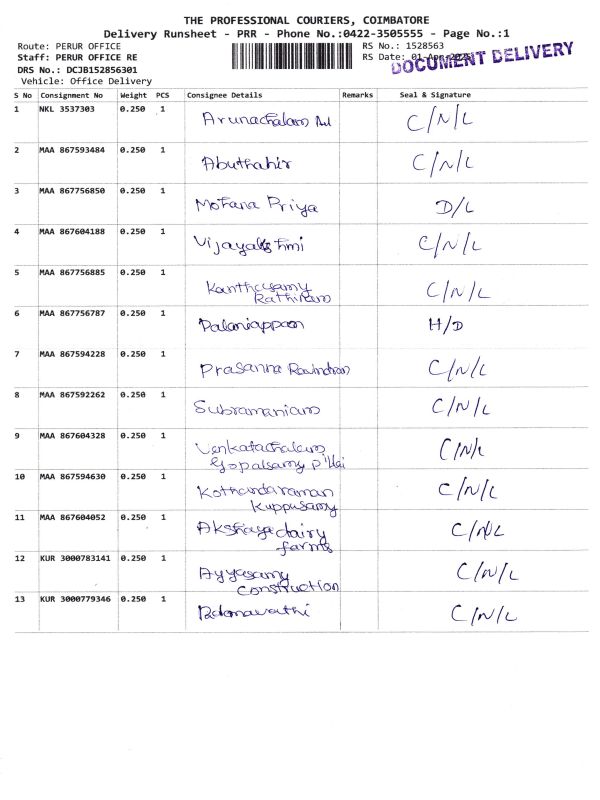 THE PROFESSIONAL COURIERS, COIMBATORE
Delivery Runsheet - PRR - Phone No.:0422-3505555 - Page No.:1
Route: PERUR OFFICE RS No.: 1528563
Staff: PERUR OFFICE RE RS Date: 01-Apr-2025
DOCUMENT DELIVERY
DRS No.: DCJB152856301
Vehicle: Office Delivery
S No Consignment No Weight PCS Consignee Details Remarks Seal & Signature
1 NKL 3537303 0.250 1 Arunachalam C/N/L
2 MAA 867593484 0.250 1 Abuthahir C/N/L
3 MAA 867756850 0.250 1 Mohana Priya D/L
4 MAA 867604188 0.250 1 Vijayalakshmi C/N/L
5 MAA 867756885 0.250 1 Kanthasamy C/N/L
Rathinam
6 MAA 867756787 0.250 1 Palaniappan H/D
7 MAA 867594228 0.250 1 Prasanna Ravindran C/N/L
8 MAA 867592262 0.250 1 Subramaniam C/N/L
9 MAA 867604328 0.250 1 Venkatachalam C/N/L
Gopalsamy Pillai
10 MAA 867594630 0.250 1 Kothandaraman C/N/L
Kuppusamy
11 MAA 867604052 0.250 1 Akshaya dairy C/N/L
farms
12 KUR 3000783141 0.250 1 Ayyasamy C/N/L
Construction
13 KUR 3000779346 0.250 1 Padmavathi C/N/L